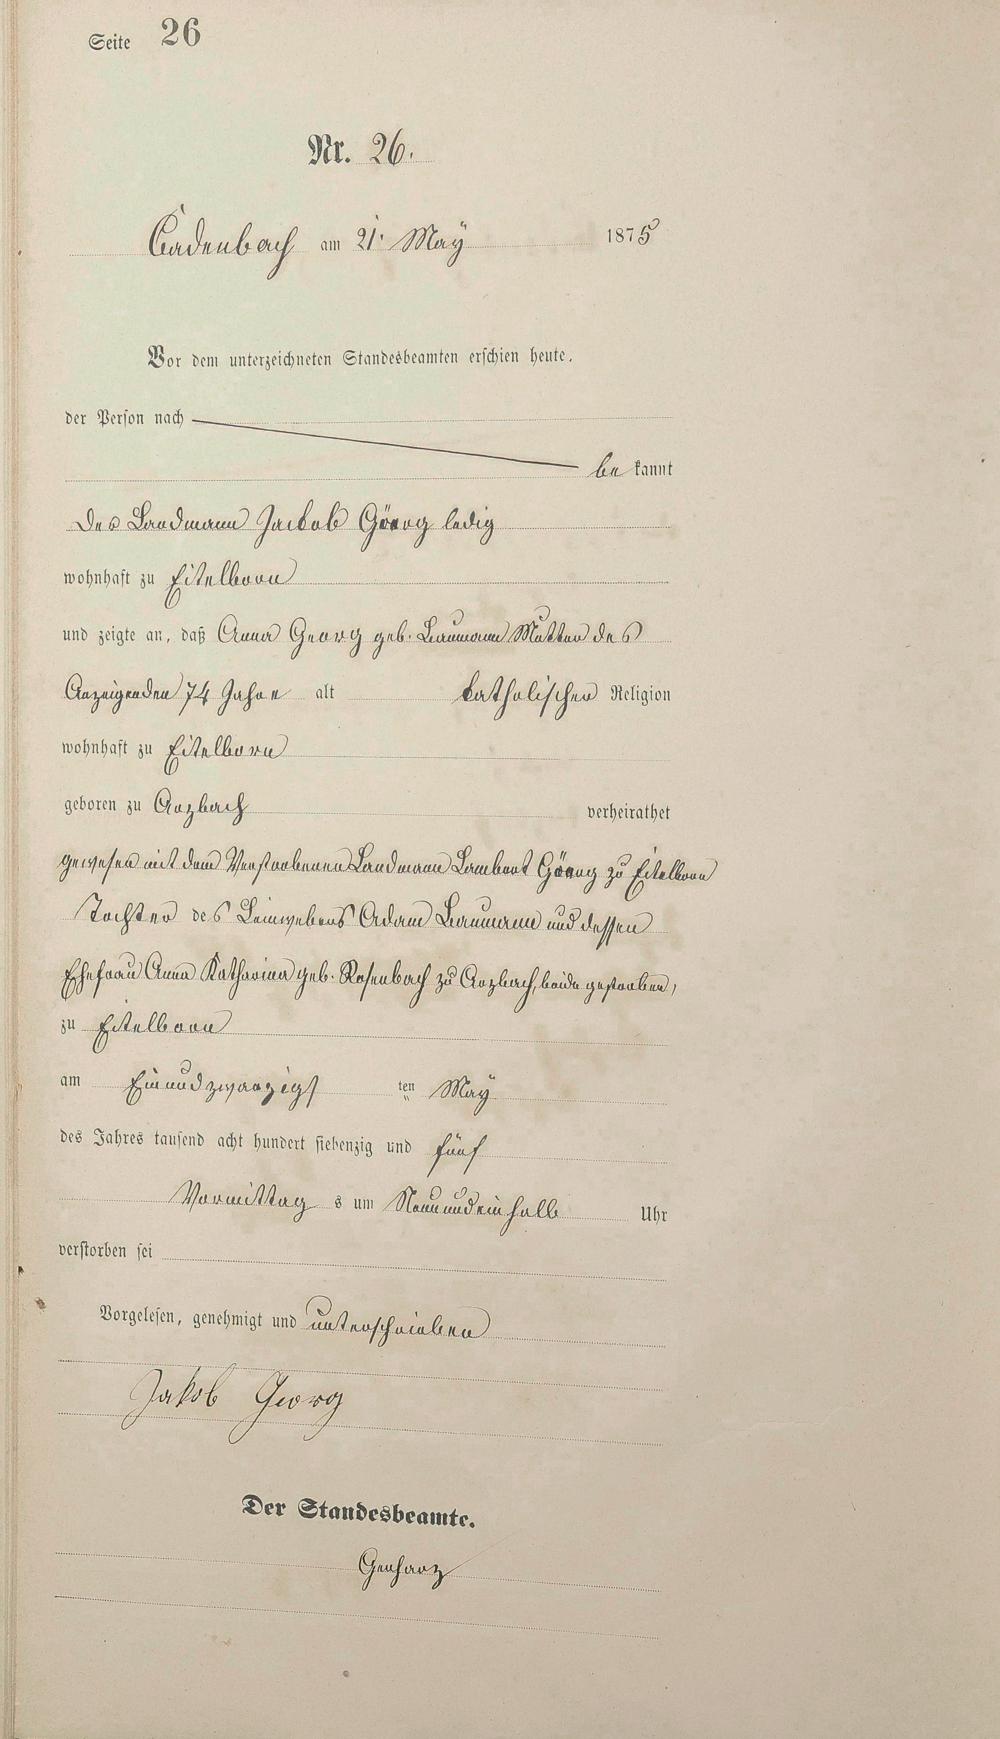 Seite 26
Nr. 26.
Cadenbach am 21t May 1875
Vor dem unterzeichneten Standesbeamten erschien heute,
der Person nach
be kannt
der Landmann Jackob Görg ledig
wohnhaft zu Eitelborn
und zeigte an, daß Anna Georg geb. Baumann Mutter des
Anzeigenden 74 Jahre alt katholischer Religion
wohnhaft zu Eitelborn
geboren zu Arzbach verheirathet
gewesen mit dem Verstorbenen Landmann Lambert Görg zu Eitelborn
Tochter des Leinwebers Adam Baumann und dessen
Ehefrau Anna Katharina geb. Rosenbach zu Arzbach, beide gestorben,
zu Eitelborn
am Einundzwanzigs ten May
des Jahres tausend acht hundert siebenzig und fünf
Vormittag s um Neunundeinhalb Uhr
verstorben sei
Vorgelesen, genehmigt und unterschrieben
Jakob Georg
Der Standesbeamte.
Gerharz